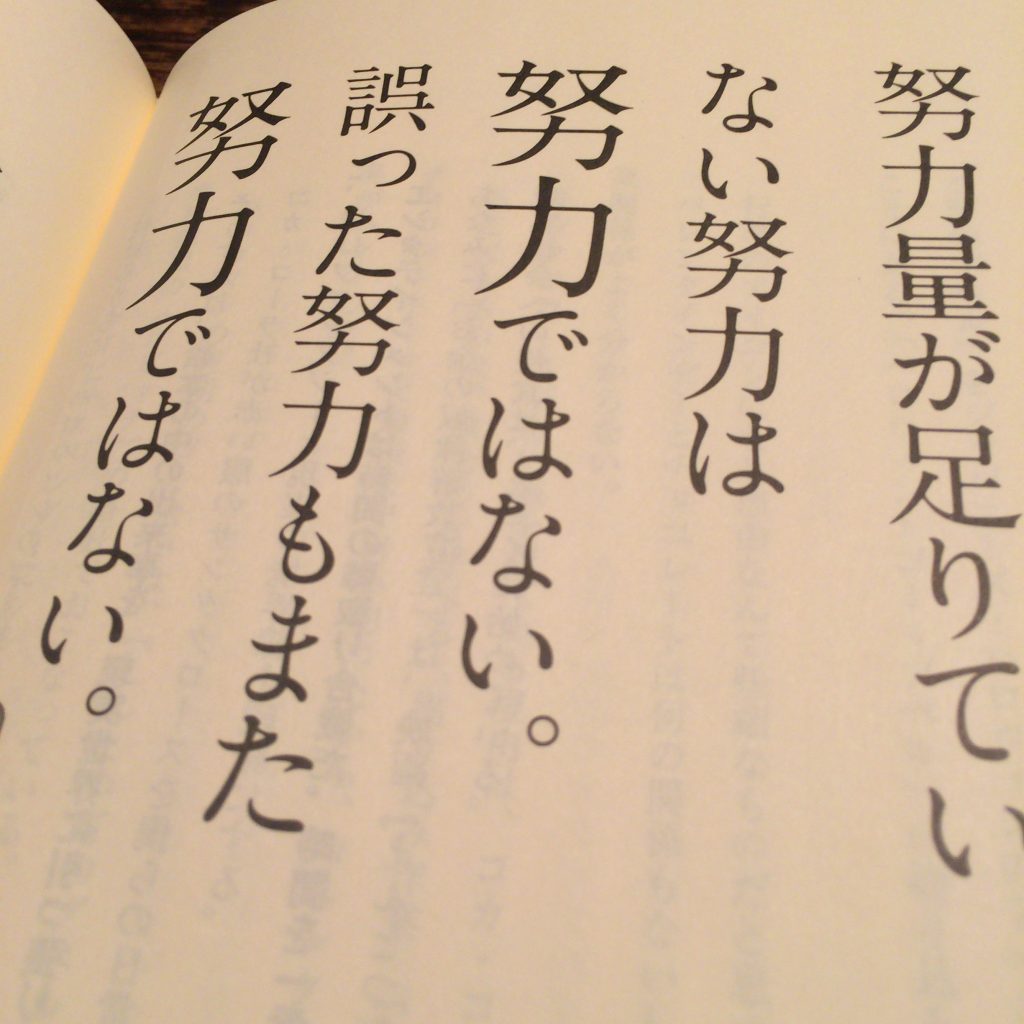 努力量が足りてい
ない努力は
努力ではない。
誤った努力もまた
努力ではない。